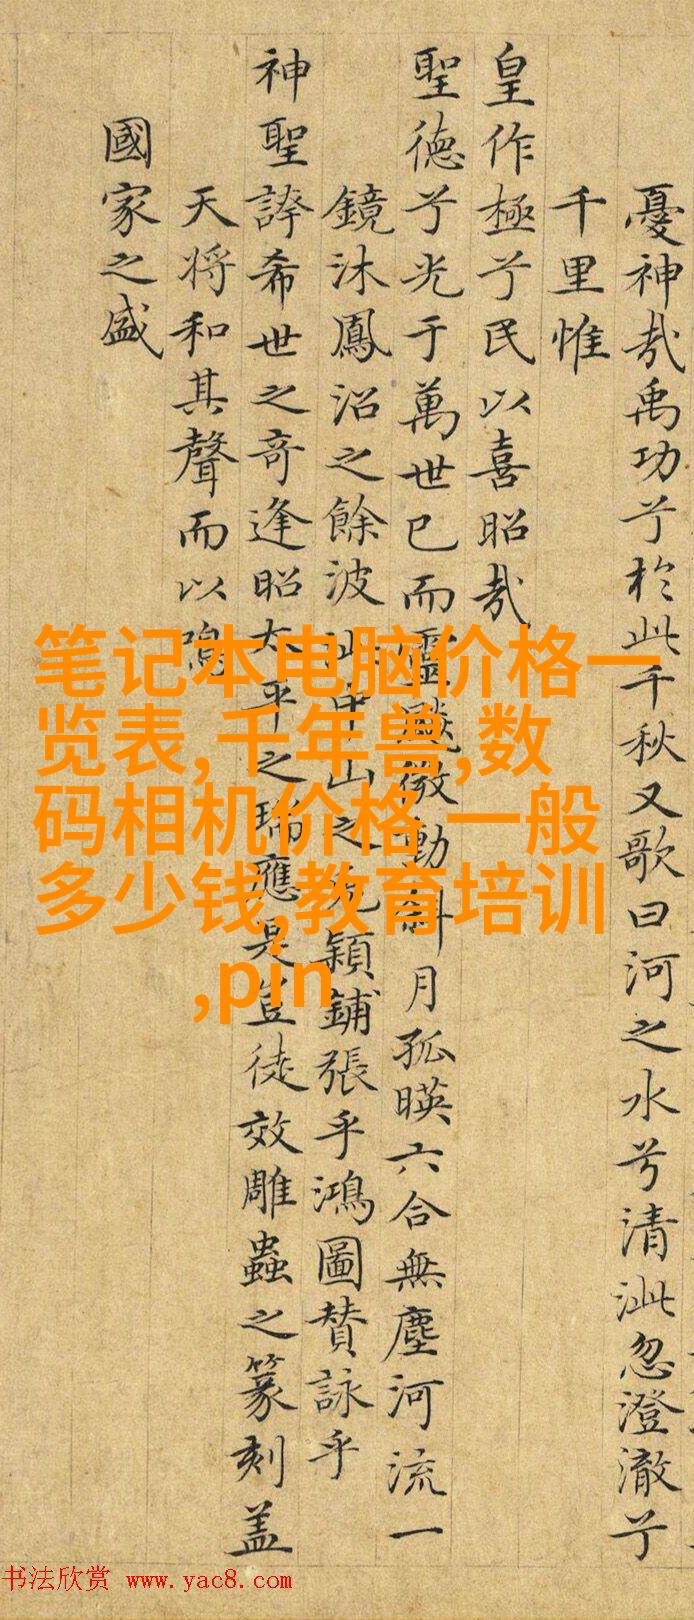 憂神哉禹功兮於此千秋又歌曰河之水兮清泚忽澄澈兮
千里惟
皇作極兮民以喜昭哉
聖德兮光于萬世已而靈飈微動斜月孤暎六合無塵河流一
鏡沐鳳沼之餘波 中山之 穎鋪張乎鴻圖賛詠乎
神聖誇希世之奇逢昭太平之瑞應是豈徒效雕蟲之篆刻盖
天将和其聲而以鳴
國家之盛
笔记本电脑价格一
览表,千年兽,数
码相机价格 一般
多少钱,教育培训
,pin
书法欣赏 www.yac8.com